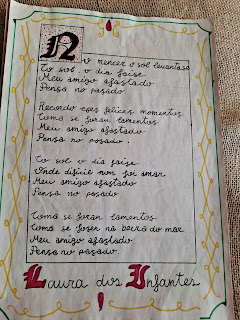 No nencer o sol levantase
Co sol o día foise
Meu amigo afastado
Penso no pasado

Recordo eses felices momentos
Como se foran lamentos
Meu amigo afastado
Penso no pasado.

Co sol o día foise
Onde difícil non foi amar
Meu amigo afastado
Penso no pasado

Como se foran lamentos
Como se fosen na beira do mar
Meu amigo afastado
Penso no pasado.

Laura dos Infantes